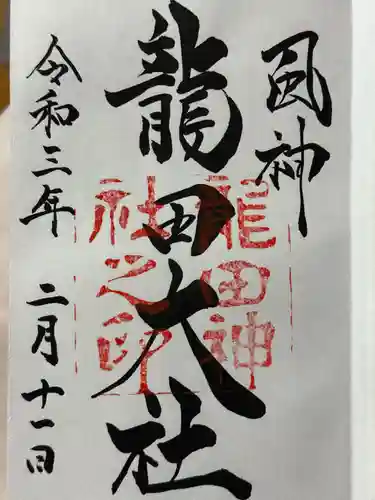 風神
龍田大社
令和三年 二月十一日
龍田神
社之印